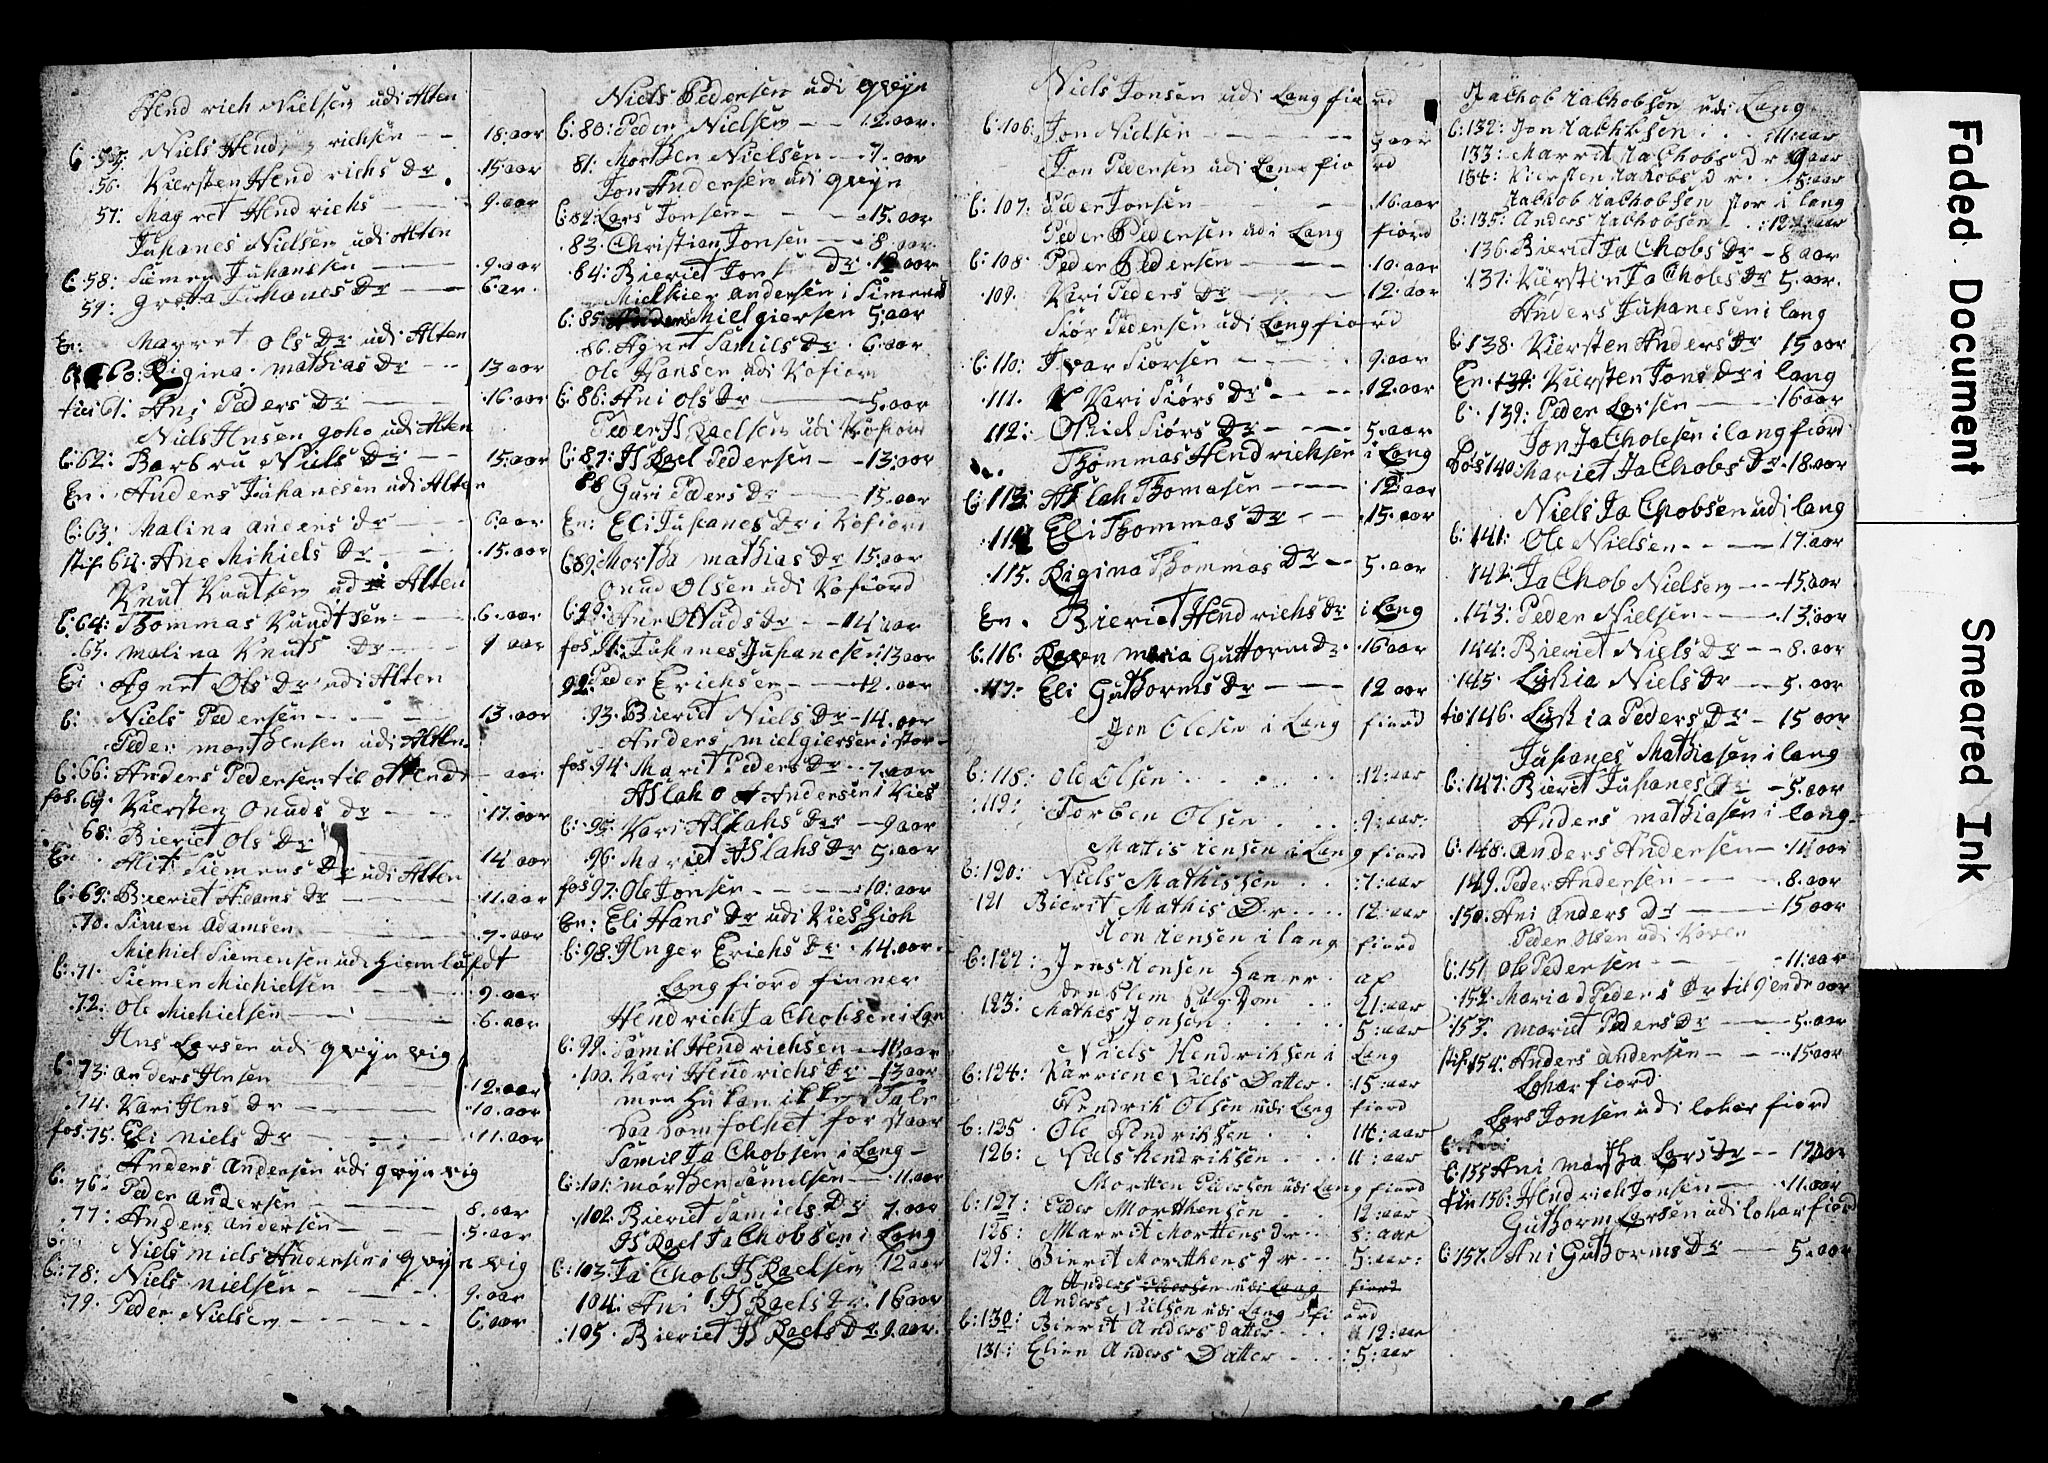 Hendrich Nielsen udi Alten
b: 55: Niels Hendrichsen -- 18: aar
56. Kiersten Hendrichs Dr. 15 aar
57: Magret Hendrichs --- 9. aar
Juhanes Nielsen udi Alten
b: 58: Siemen Juhanssen --- 9. aar
59: Gretta Juhanes Dr --- 6 ar.
En: Marret Ols Dr udi Alten
60: Rigina Mathias Dr --- 13 aar
61: Ani Peders Dr --- 16. aar
Niels Hnsen goho udi Alten
b: 62: Barbru Niels Dr -- 15: aar
En. Anders Juhanesen udi Alten
b: 63: Malina Anders Dr --- 6: aar
stif 64. Ane Mihiels Dr --- 15. aar
Knut Knutsen udi Alten
b: 64: Thommas Knudtsen --- 6. aar
65. Malina Knuts Dr --- 9 aar
En. Agnet Ols Dr udi Alten
b: Niels Pedersen --- 13. aar
Peder Morthensen udi Alten
b: 66: Anders Pedersen til ottende aar
fos. 67 Kiersten Onuds Dr -- 17: aar
68: Bieriet Ols Dr --- 14 aar
En. Siemens Dr udi Alten
b: 69: Bieriet Adams Dr --- 11. aar
70. Simen Adamsen --- 7. aar
Michiel Siemensen udi
b: 71 Siemen Michielsen --- 9. aar
72: Ole Michielsen --- 6. aar
Hns Larsen udi qvynvig
b: 73: Anders Hnsen --- 12. aar
74. Kari Hns Dr --- 10. aar
fos. 75: Eli Niels Dr --- 11. aar
Anders Andersen udi qvynvig
b: 76: Peder Andersen --- 8. aar
77: Anders Andersen --- 5. aar
Niels Niels Andersen i qvynvig
b: 78: Niels Nielsen --- 9. aar
79. Peder Nielsen --- 6: aar
Niels Pedersen udi qvyn
b: 80: Peder Nielsen --- 12. aar.
81: Morthen Nielsen -- 7. aar
Jon Andersen udi qvyn
b: 82: Lars Jonsen --- 15. aar
83. Christian Jonsen --- 8. aar
84: Bieriet Jons Dr. aar
Mielkier Andersen i
b: 85: Anders Mielgiersen 5: aar
86. Agnet Samils Dr. 6. aar
Ole Hansen udi Kofiord
b: 86: Ani Ols Dr --- 5. aar
Peder ISRaelsen udi Kofiord
b: 87: ISRael Pedersen -- 13: aar
88 Guri Peders Dr --- 15. aar
En: Eli Juhanes Dr i Kofiord
b: 89: Mortha Mathias Dr 15: aar
Onud Olsen udi Kofiord
Ane ONuds Dr -- 14: aar
fos. 91. Juhanes Juhanesen: 13 aar
92: Peder Erichsen --- 12. aar
93: Bieriet Niels Dr - 14. aar
Anders Mielgiersen i stor-
fos. 94: Marit Peders Dr -- 7. aar
Aslak Andersen i Kies
b: 95: Kari Aslahs Dr -- 9 aar
96: Mariet Aslahs Dr 5. aar
fos 97: Ole Jonsen --- 10: aar
En: Eli Hans Dr udi Kies
b: 98. Hnger Erichs Dr. 14. aar.
Langfiord finner
Hendrich JaChobsen i Lan
b: 99: Samil Hendrichsen -- aar
100. Kari Hendrichs Dr -- 13 aar
men hu kan ikke Tale
saa som folket for staar
Samil JaChobsen i Lang-
b: 101: Morthen Samilsen --- 11. aar
102. Bieriet Samiels Dr 7. aar
ISRael JaChobsen i Lang
b: 103. JaChob ISRaelsen 12 aar
104: Ani ISRaels Dr. 16 aar
105. Bieriet ISRaels Dr 9. aar.
Niels Jonsen udi Langfiurd
b: 106: Jon Nielsen --- 9 aar
Jon Pedersen udi Langfiord
b: 107: Peder Jonsen --- 16 aar
Peder Pedersen udi Lang fiord
b: 108: Peder Pedersen --- 10. aar
109. Kari Peders Dr --- 12. aar
Siør Pedersen udi Langfiord
b: 110: Ivar Siørsen --- 9. aar
111. Kari Siørs Dr --- 12. aar
112: Siørs Dr --- 5. aar
Thommas Hendrichsen i Lang
b: 113: Aslah Thomasen --- 12: aar
114 Eli Thommas Dr -- 15. aar
115. Rigina Thommas Dr -- 5. aar
En. Bieriet Hendrichs Dr i Lang
b: 116. Maria Guttorm Dr. 16 aar
117: Eli Guthorms Dr --- 12 aar
Jon Olesen i Lang fiord
b: 118: Ole Olsen . . . 12: aar
119: Torben Olsen . . . 9: aar:
Matis Jensen i Lang fiord
b: 120: Niels Mathissen . . 7: aar
121 Bierit Mathis Dr . . . 12: aar
Jon Jensen i lang fiord
b: 122: Jens Jonsen haner. af
den 21: aar
123: Mathis Jonsen . . . 5: aar
Niels Hendriksen i Lang
b: 124: Karrien Niels Datter. 15: aar
Hendrik Olsen udi Lang fiord
b: 125 Ole Hendriksen . . 14: aar
126: Niels Hendriksen . . 11: aar
Morten Pedersen udi Lang fiord
b: 127: Peder Morthensen . . 12: aar
128: Marrit Morttens Dr -- 8: aar
129: Bierit Morthens Dr --- 5: aar:
Anders Pedersen udi Lang fiord
Anders Nielsen udi Lang fiurd
b: 130: Bierit Anders Datter --- 12: aar
131: Elien Anders Datter . . . 5: aar
Jachob Jachobsen udi Lang
b: 132: Jon Jachobsen . . . 11: aar
133: Marrit Jachobs Dr 9 aar
134: Kiersten Jakobs Dr. 5: aar
Jakob Jakhobsen stor i lang
b: 135: Anders Jakhobsen . : 12: aar
136. Bieriet JaChobs Dr - 8 aar
137: Kiersten JaChobs Dr 5. aar.
Anders Juhanesen i lang
b 138. Kiersten Anders Dr 15 aar
En. 139: Kiersten Jons Dr i lang
b. 139: Peder Larsen --- 16: aar
Jon JaChobsen i langfiord
Døs 140: Mariet JaChobs Dr. 18. aar
Niels JaChobsen udi lang
b: 141: Ole Nielsen --- 17. aar
142: JaChob Nielsen --- 15: aar
143: Peder Nielsen --- 13: aar
144: Bieriet Niels Dr -- 8. aar
145. Lyhia Niels Dr --- 5. aar
146. Peders Dr - 15 aar
Juhanes Mathiasen i lang
b: 147: Bieriet Juhanes Dr - 5. aar
Anders Mathiasen i lang-
b: 148. Anders Andersen - 11 aar
149. Peder Andersen --- 8. aar
150. Ani Anders Dr --- 15 aar
Peder Olsen udi Koven
b: 151 Ole Pedersen --- 11: aar
152. Peders Dr til 9ende aar
153. Mariet Peders Dr --- 5. aar
stif 154: Anders Andersen --- 15 aar
Lohar fiord
Lars Jonsen udi lohar fiord
b: 155 Ani Martha Lars Dr -- 17 aar
156: Hendrich Jonsen --- 11. aar
Guthorm Larsen udi lohar fiord
b: 157. Ani Guthorms Dr --- 5. aar
Faded Document
Smeared Ink